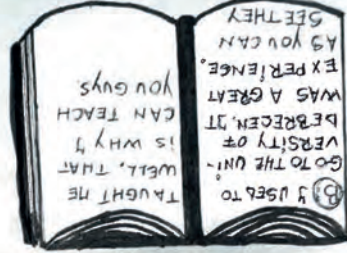 B: I USED TO
GO TO THE UNI-
VERSITY OF
DEBRECEN. IT
WAS A GREAT
EXPERIENCE.
AS YOU CAN
SEE THEY
TAUGHT ME
WELL, THAT
IS WHY I
CAN TEACH
YOU GUYS.